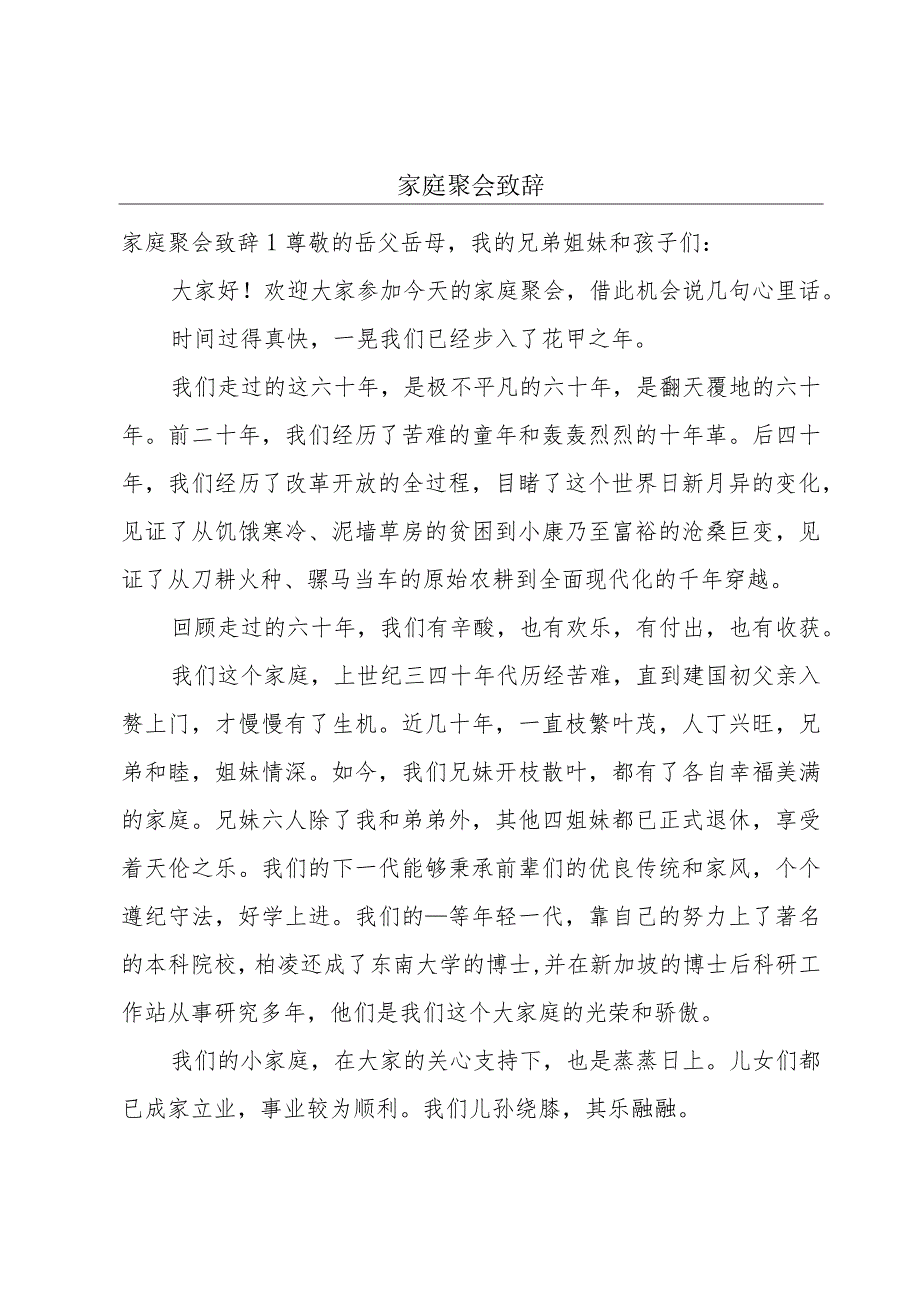 家庭聚会致辞
家庭聚会致辞1尊敬的岳父岳母，我的兄弟姐妹和孩子们：
大家好！欢迎大家参加今天的家庭聚会，借此机会说几句心里话。
时间过得真快，一晃我们已经步入了花甲之年。
我们走过的这六十年，是极不平凡的六十年，是翻天覆地的六十
年。前二十年，我们经历了苦难的童年和轰轰烈烈的十年革。后四十
年，我们经历了改革开放的全过程，目睹了这个世界日新月异的变化，
见证了从饥饿寒冷、泥墙草房的贫困到小康乃至富裕的沧桑巨变，见
证了从刀耕火种、骡马当车的原始农耕到全面现代化的千年穿越。
回顾走过的六十年，我们有辛酸，也有欢乐，有付出，也有收获。
我们这个家庭，上世纪三四十年代历经苦难，直到建国初父亲入
赘上门，才慢慢有了生机。近几十年，一直枝繁叶茂，人丁兴旺，兄
弟和睦，姐妹情深。如今，我们兄妹开枝散叶，都有了各自幸福美满
的家庭。兄妹六人除了我和弟弟外，其他四姐妹都已正式退休，享受
着天伦之乐。我们的下一代能够秉承前辈们的优良传统和家风，个个
遵纪守法，好学上进。我们的—等年轻一代，靠自己的努力上了著名
的本科院校，柏凌还成了东南大学的博士,并在新加坡的博士后科研工
作站从事研究多年，他们是我们这个大家庭的光荣和骄傲。
我们的小家庭，在大家的关心支持下，也是蒸蒸日上。儿女们都
已成家立业，事业较为顺利。我们儿孙绕膝，其乐融融。